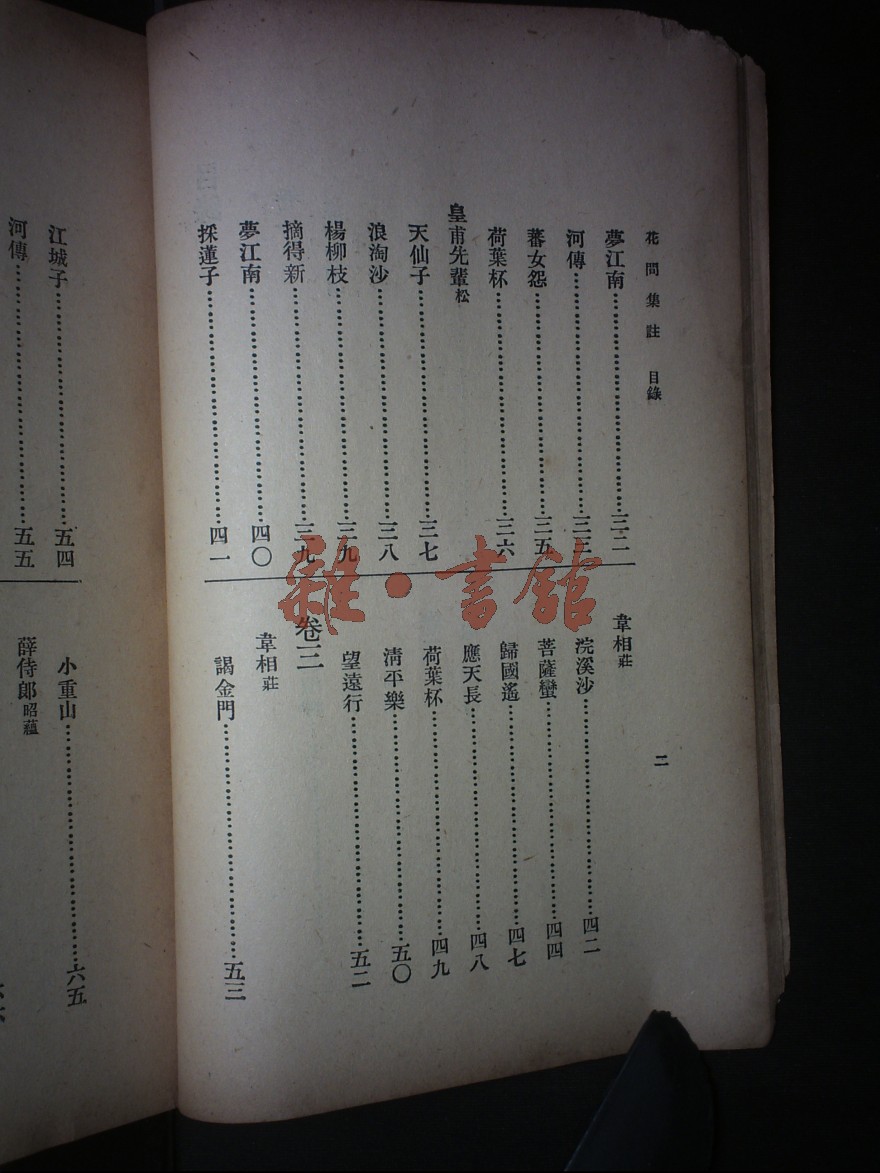 花間集註 目錄
二
夢江南……三二
河傳……三三
蕃女怨……三五
荷葉杯……三六
皇甫先輩松
天仙子……三七
浪淘沙……三八
楊柳枝……三九
摘得新……三九
夢江南……四〇
採蓮子……四一
韋相莊
浣溪沙……四二
菩薩蠻……四四
歸國遙……四七
應天長……四八
荷葉杯……四九
清平樂……五〇
望遠行……五二
卷三
韋相莊
謁金門……五三
江城子……五四
河傳……五五
小重山……六五
薛侍郎昭蘊
雜·書館